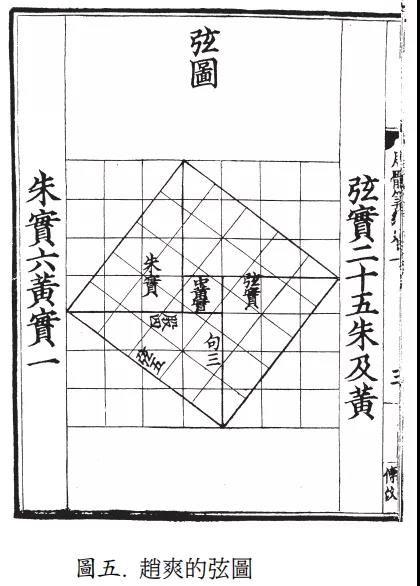 弦圖
弦實二十五朱及黃
弦實
中黃實
朱實
股四
句三
弦五
朱實六黃實一
三
圖五. 趙爽的弦圖